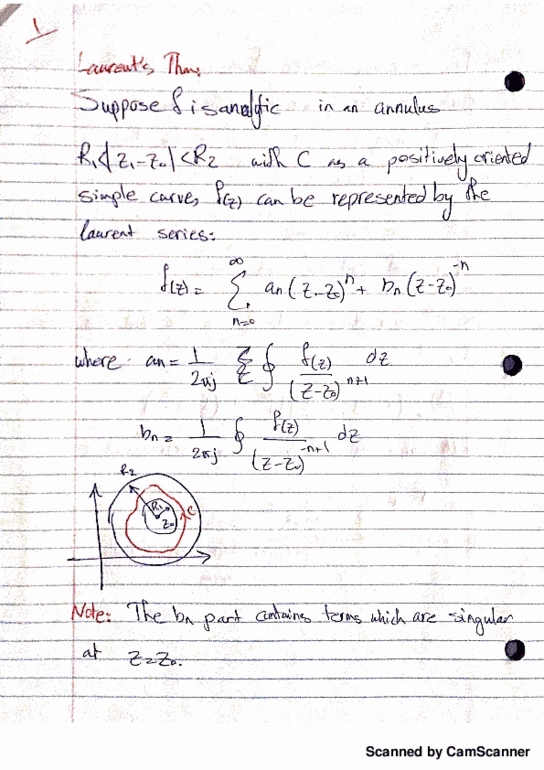 1
Laurent's Thm,
Suppose f is analytic in an annulus
R₁<|z₁-z₀|<R₂ with C as a positively oriented
simple curve, f(z) can be represented by the
laurent series:
f(z) = ∑_{n=0}^{∞} an (z-z₀)^n + bn (z-z₀)^{-n}
where an = 1/(2πj) ∮ f(z)/(z-z₀)^{n+1} dz
bn = 1/(2πj) ∮ f(z)/(z-z₀)^{-n+1} dz
R₂
R₁ C
z₀
Note: The bn part contains terms which are singular
at z=z₀.
Scanned by CamScanner